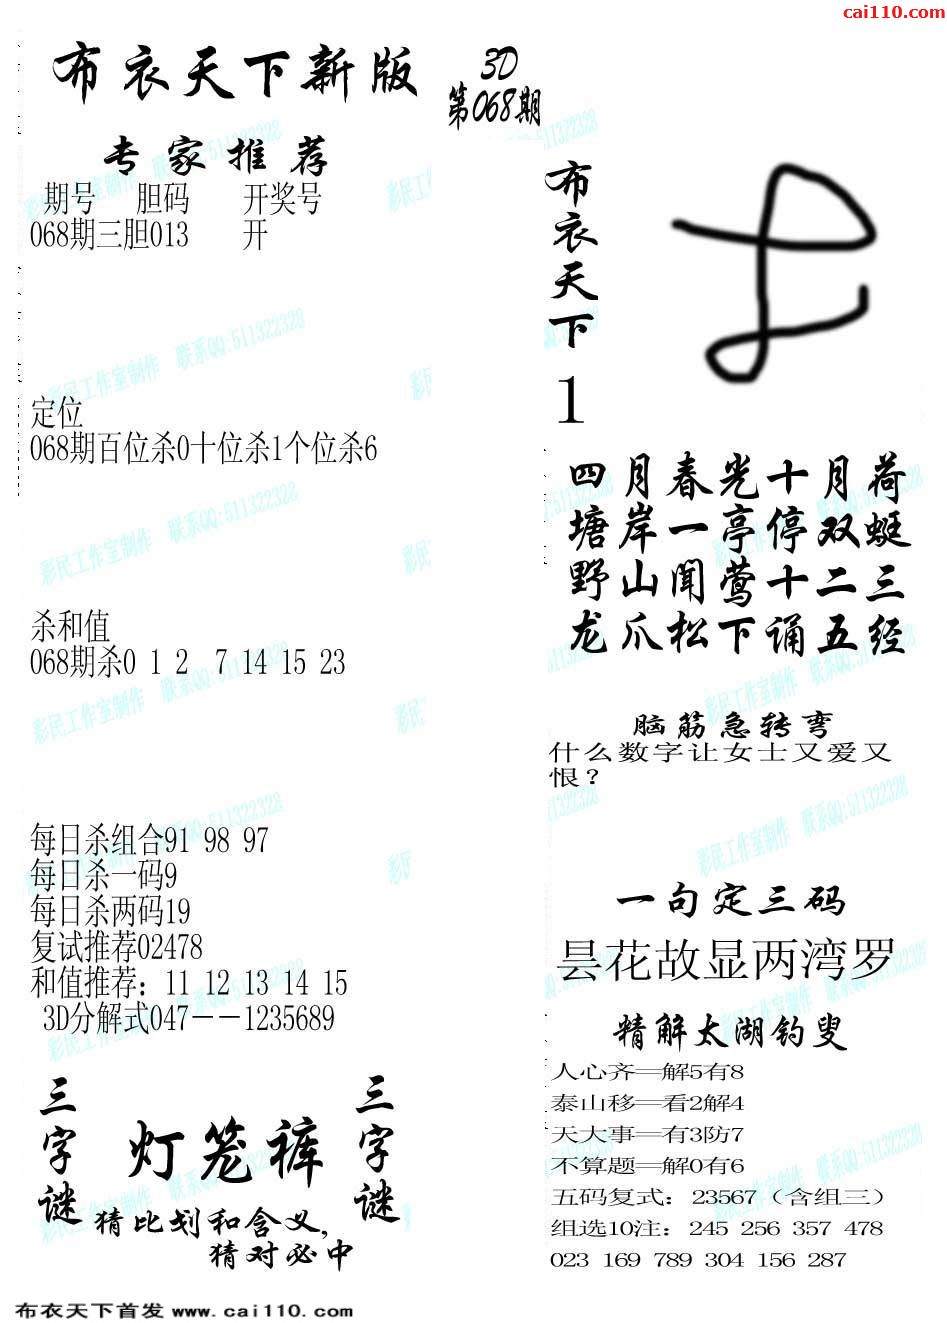 cai110.com
布衣天下新版
专家推荐
期号 胆码 开奖号
068期三胆013 开
定位
068期百位杀0十位杀1个位杀6
杀和值
068期杀0 1 2 7 14 15 23
每日杀组合91 98 97
每日杀一码9
每日杀两码19
复试推荐02478
和值推荐：11 12 13 14 15
3D分解式047－－1235689
三字谜
灯笼裤
三字谜
猜比划和含义，
猜对必中
3D
第068期
布衣天下
1
四月春光十月荷
塘岸一亭停双蜓
野山闻莺十二三
龙爪松下诵五经
脑筋急转弯
什么数字让女士又爱又
恨？
一句定三码
昙花故显两湾罗
精解太湖钓叟
人心齐═解5有8
泰山移═看2解4
天大事═有3防7
不算题═解0有6
五码复式：23567（含组三）
组选10注：245 256 357 478
023 169 789 304 156 287
彩民工作室制作 联系QQ:511322328
彩民工作室制作 联系QQ:511322328
彩民工作室制作 联系QQ:511322328
彩民工作室制作 联系QQ:511322328
布衣天下首发 www.cai110.com